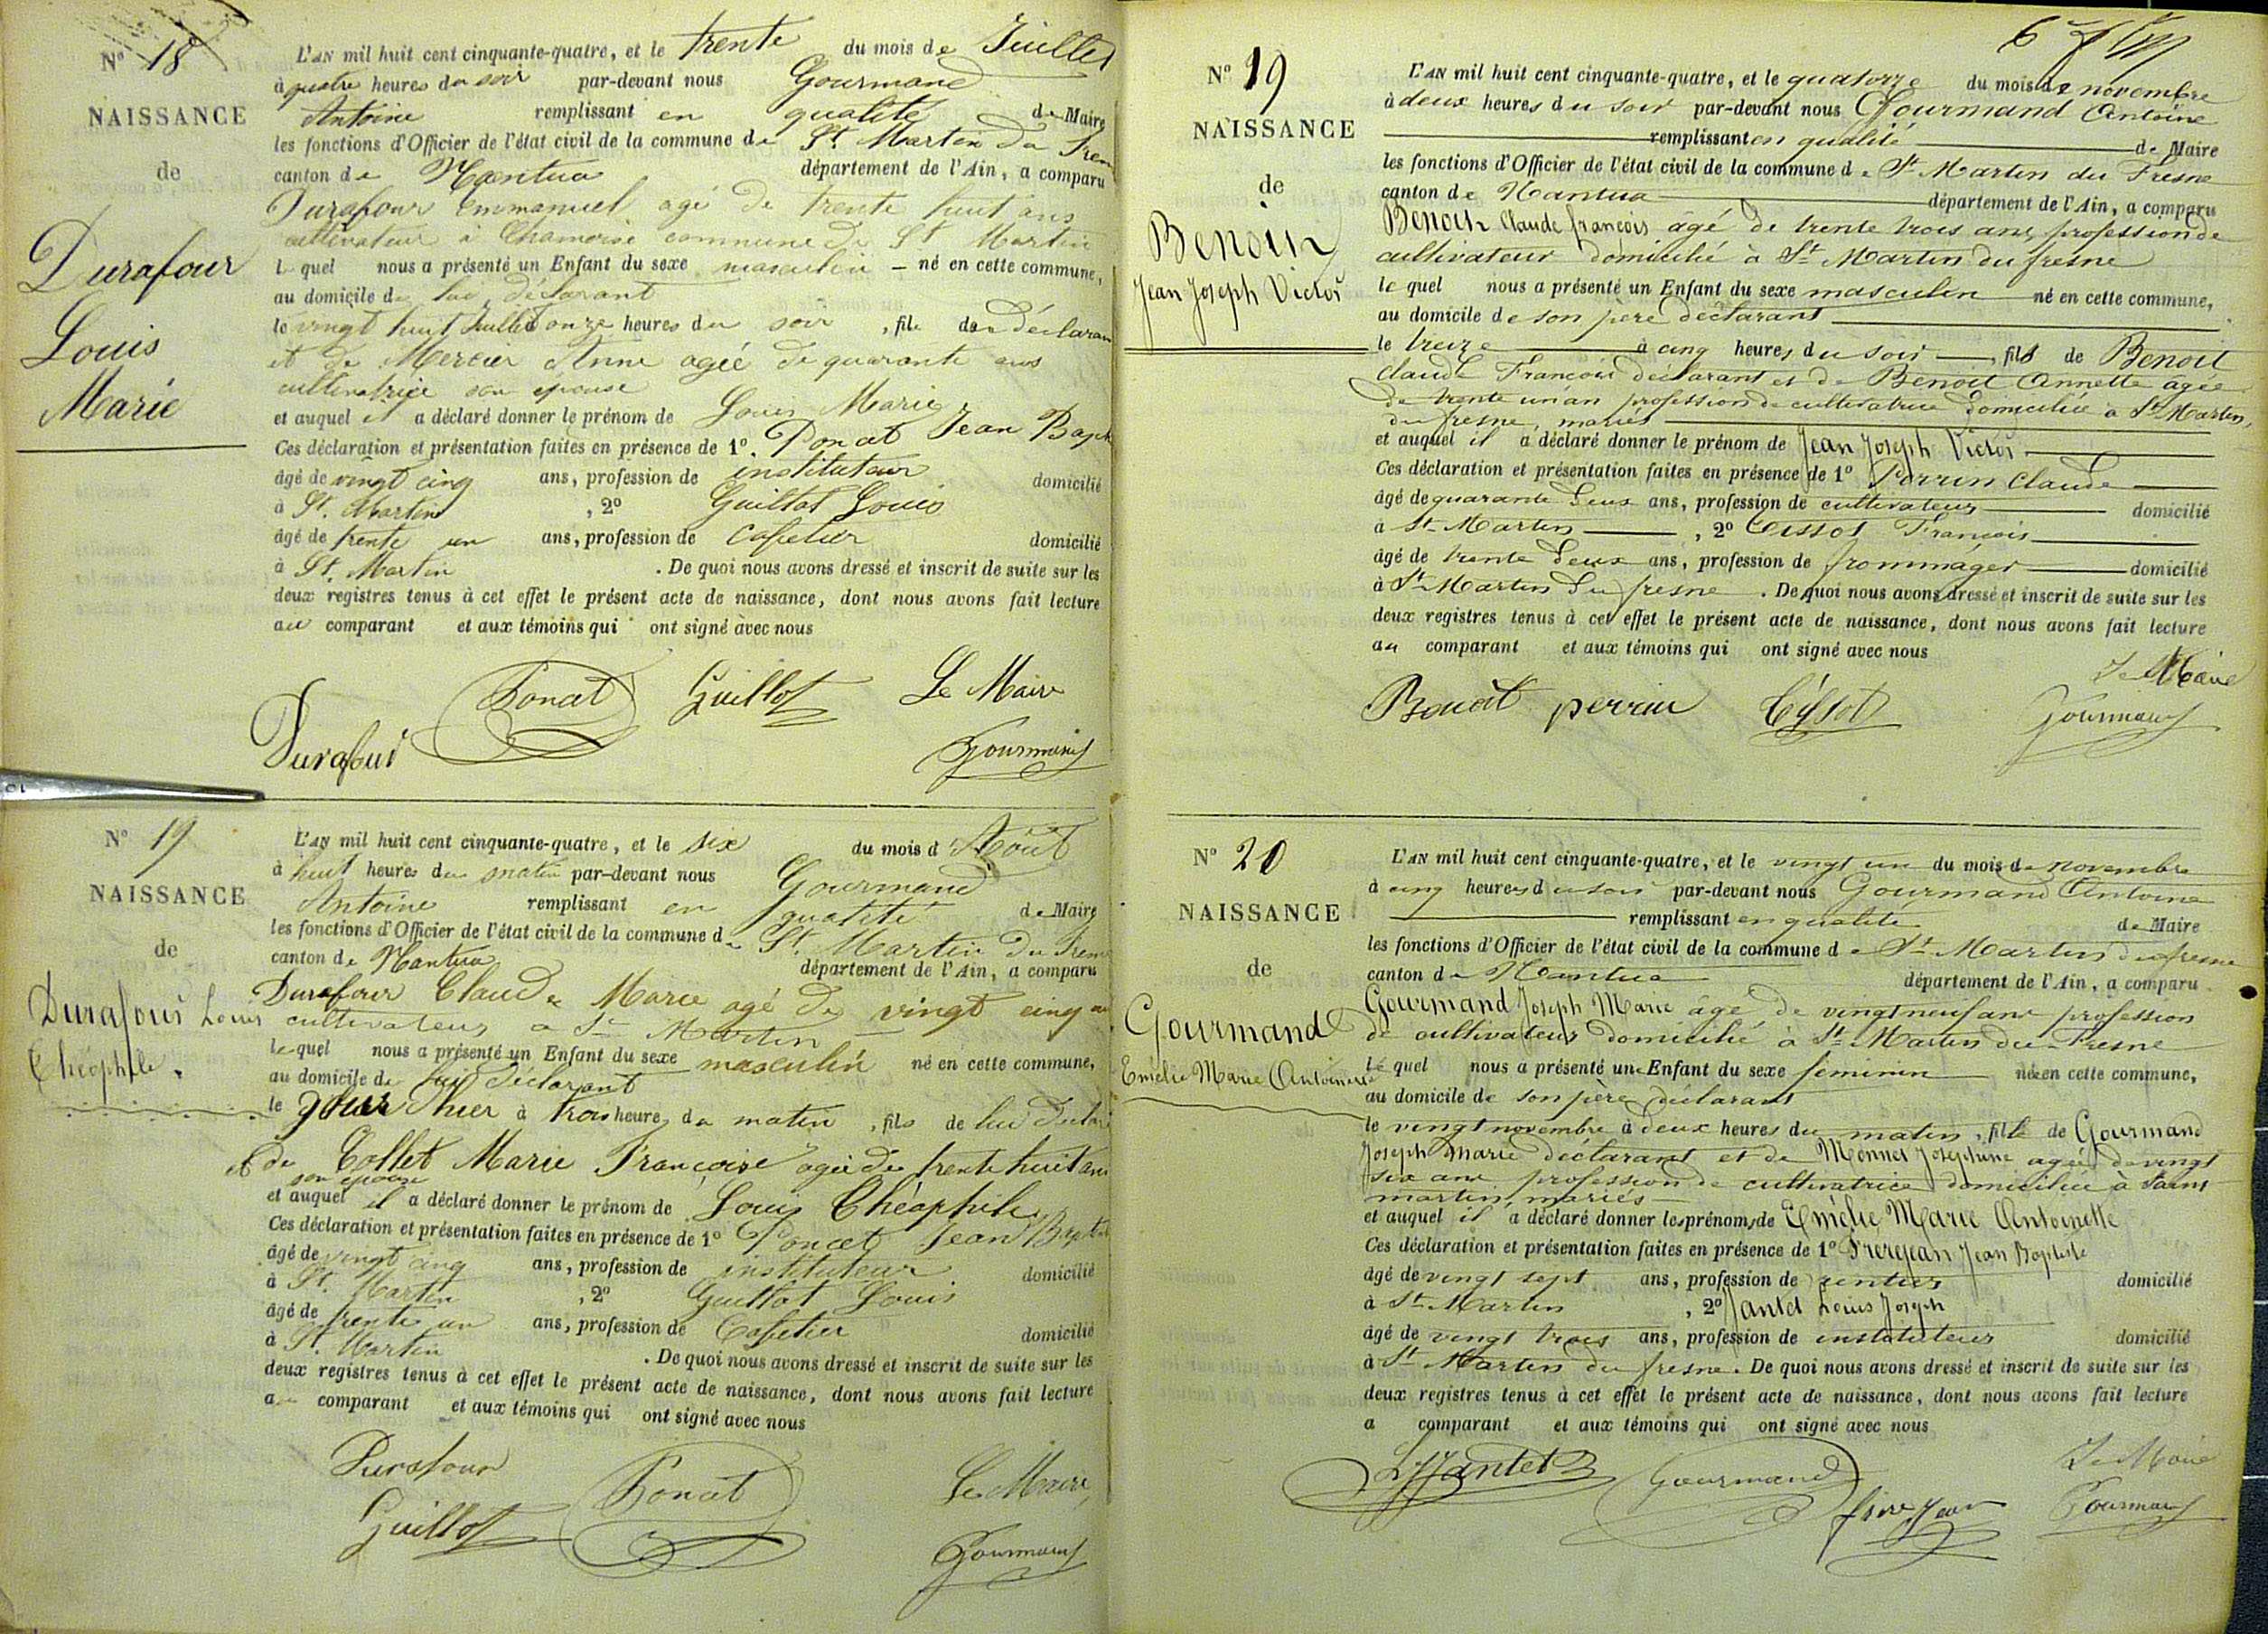 N° 18
NAISSANCE
de
Durafour
Louis
Marie
L'AN mil huit cent cinquante-quatre, et le trente du mois de Juillet
à quatre heures du soir par-devant nous Gourmand
Antoine remplissant en qualité de Maire
les fonctions d'Officier de l'état civil de la commune de St. Martin du
canton de Nantua département de l'Ain, a comparu
Durafour Emmanuel agé de trente huit ans
cultivateur à Chamoise commune de St Martin
lequel nous a présenté un Enfant du sexe masculin – né en cette commune,
au domicile de lui déclarant
le vingt huit Juillet onze heures du soir, fils de
et de Mercier Anne agée de quarante ans
cultivatrice son épouse
et auquel il a déclaré donner le prénom de Louis Marie
Ces déclaration et présentation faites en présence de 1° Poncet Jean
âgé de vingt cinq ans, profession de instituteur domicilié
à St. Martin, 2° Guillot Louis
âgé de trente un ans, profession de Cafetier domicilié
à St. Martin. De quoi nous avons dressé et inscrit de suite sur les
deux registres tenus à cet effet le présent acte de naissance, dont nous avons fait lecture
au comparant et aux témoins qui ont signé avec nous
Poncet Guillot Le Maire
Durafour Gourmand
N° 19
NAISSANCE
de
Durafour Louis
Théophile.
L'AN mil huit cent cinquante-quatre, et le six du mois d'Août
à huit heures du matin par-devant nous Gourmand
Antoine remplissant en qualité de Maire
les fonctions d'Officier de l'état civil de la commune de St. Martin du
canton de Nantua département de l'Ain, a comparu
Durafour Claude Marie agé de vingt cinq
cultivateur à St Martin
lequel nous a présenté un Enfant du sexe masculin né en cette commune,
au domicile de lui déclarant
le jour hier à trois heures du matin, fils de lui
et de Collet Marie Françoise agée de trente huit ans
son épouse
et auquel il a déclaré donner le prénom de Louis Théophile
Ces déclaration et présentation faites en présence de 1° Poncet Jean
âgé de vingt cinq ans, profession de instituteur domicilié
à St. Martin, 2° Guillot Louis
âgé de trente un ans, profession de Cafetier domicilié
à St. Martin. De quoi nous avons dressé et inscrit de suite sur les
deux registres tenus à cet effet le présent acte de naissance, dont nous avons fait lecture
au comparant et aux témoins qui ont signé avec nous
Durafour Poncet Le Maire
Guillot Gourmand
N° 19
NAISSANCE
de
Benoit
Jean Joseph Victor
L'AN mil huit cent cinquante-quatre, et le quatorze du mois de novembre
à deux heures du soir par-devant nous Gourmand Antoine
remplissant en qualité de Maire
les fonctions d'Officier de l'état civil de la commune de St Martin du Fresne
canton de Nantua département de l'Ain, a comparu
Benoit Claude françois âgé de trente trois ans, profession de
cultivateur domicilié à St Martin du fresne
lequel nous a présenté un Enfant du sexe masculin né en cette commune,
au domicile de son père déclarant
le treize à cinq heures du soir, fils de Benoit
claude François déclarant et de Benoit Annette agée
de trente un an profession de cultivatrice domiciliée à St Martin
du fresne, mariés
et auquel il a déclaré donner le prénom de Jean Joseph Victor
Ces déclaration et présentation faites en présence de 1° Perrin Claude
âgé de quarante deux ans, profession de cultivateur domicilié
à St Martin, 2° Tissot François
âgé de trente deux ans, profession de frommager domicilié
à St Martin du fresne. De quoi nous avons dressé et inscrit de suite sur les
deux registres tenus à cet effet le présent acte de naissance, dont nous avons fait lecture
au comparant et aux témoins qui ont signé avec nous
Benoit perrin Le Maire
Gourmand
N° 20
NAISSANCE
de
Gourmand
Emélie Marie Antoinette
L'AN mil huit cent cinquante-quatre, et le vingt un du mois de novembre
à cinq heures du soir par-devant nous Gourmand Antoine
remplissant en qualité de Maire
les fonctions d'Officier de l'état civil de la commune de St Martin du fresne
canton de Nantua département de l'Ain, a comparu
Gourmand Joseph Marie âgé de vingt neuf ans profession
de cultivateur domicilié à St Martin du Fresne
lequel nous a présenté une Enfant du sexe féminin née en cette commune,
au domicile de son père déclarant
le vingt novembre à deux heures du matin, fille de Gourmand
Joseph Marie déclarant et de Monnet Joséphine agée de vingt
six ans profession de cultivatrice domiciliée à Saint
martin, mariés
et auquel il a déclaré donner les prénoms de Emélie Marie Antoinette
Ces déclaration et présentation faites en présence de 1° Frerejean Jean Baptiste
âgé de vingt sept ans, profession de rentier domicilié
à St Martin, 2° Jantet Louis Joseph
âgé de vingt trois ans, profession de instituteur domicilié
à St Martin du fresne. De quoi nous avons dressé et inscrit de suite sur les
deux registres tenus à cet effet le présent acte de naissance, dont nous avons fait lecture
a comparant et aux témoins qui ont signé avec nous
L J Jantet Gourmand Le Maire
frere Jean Gourmand